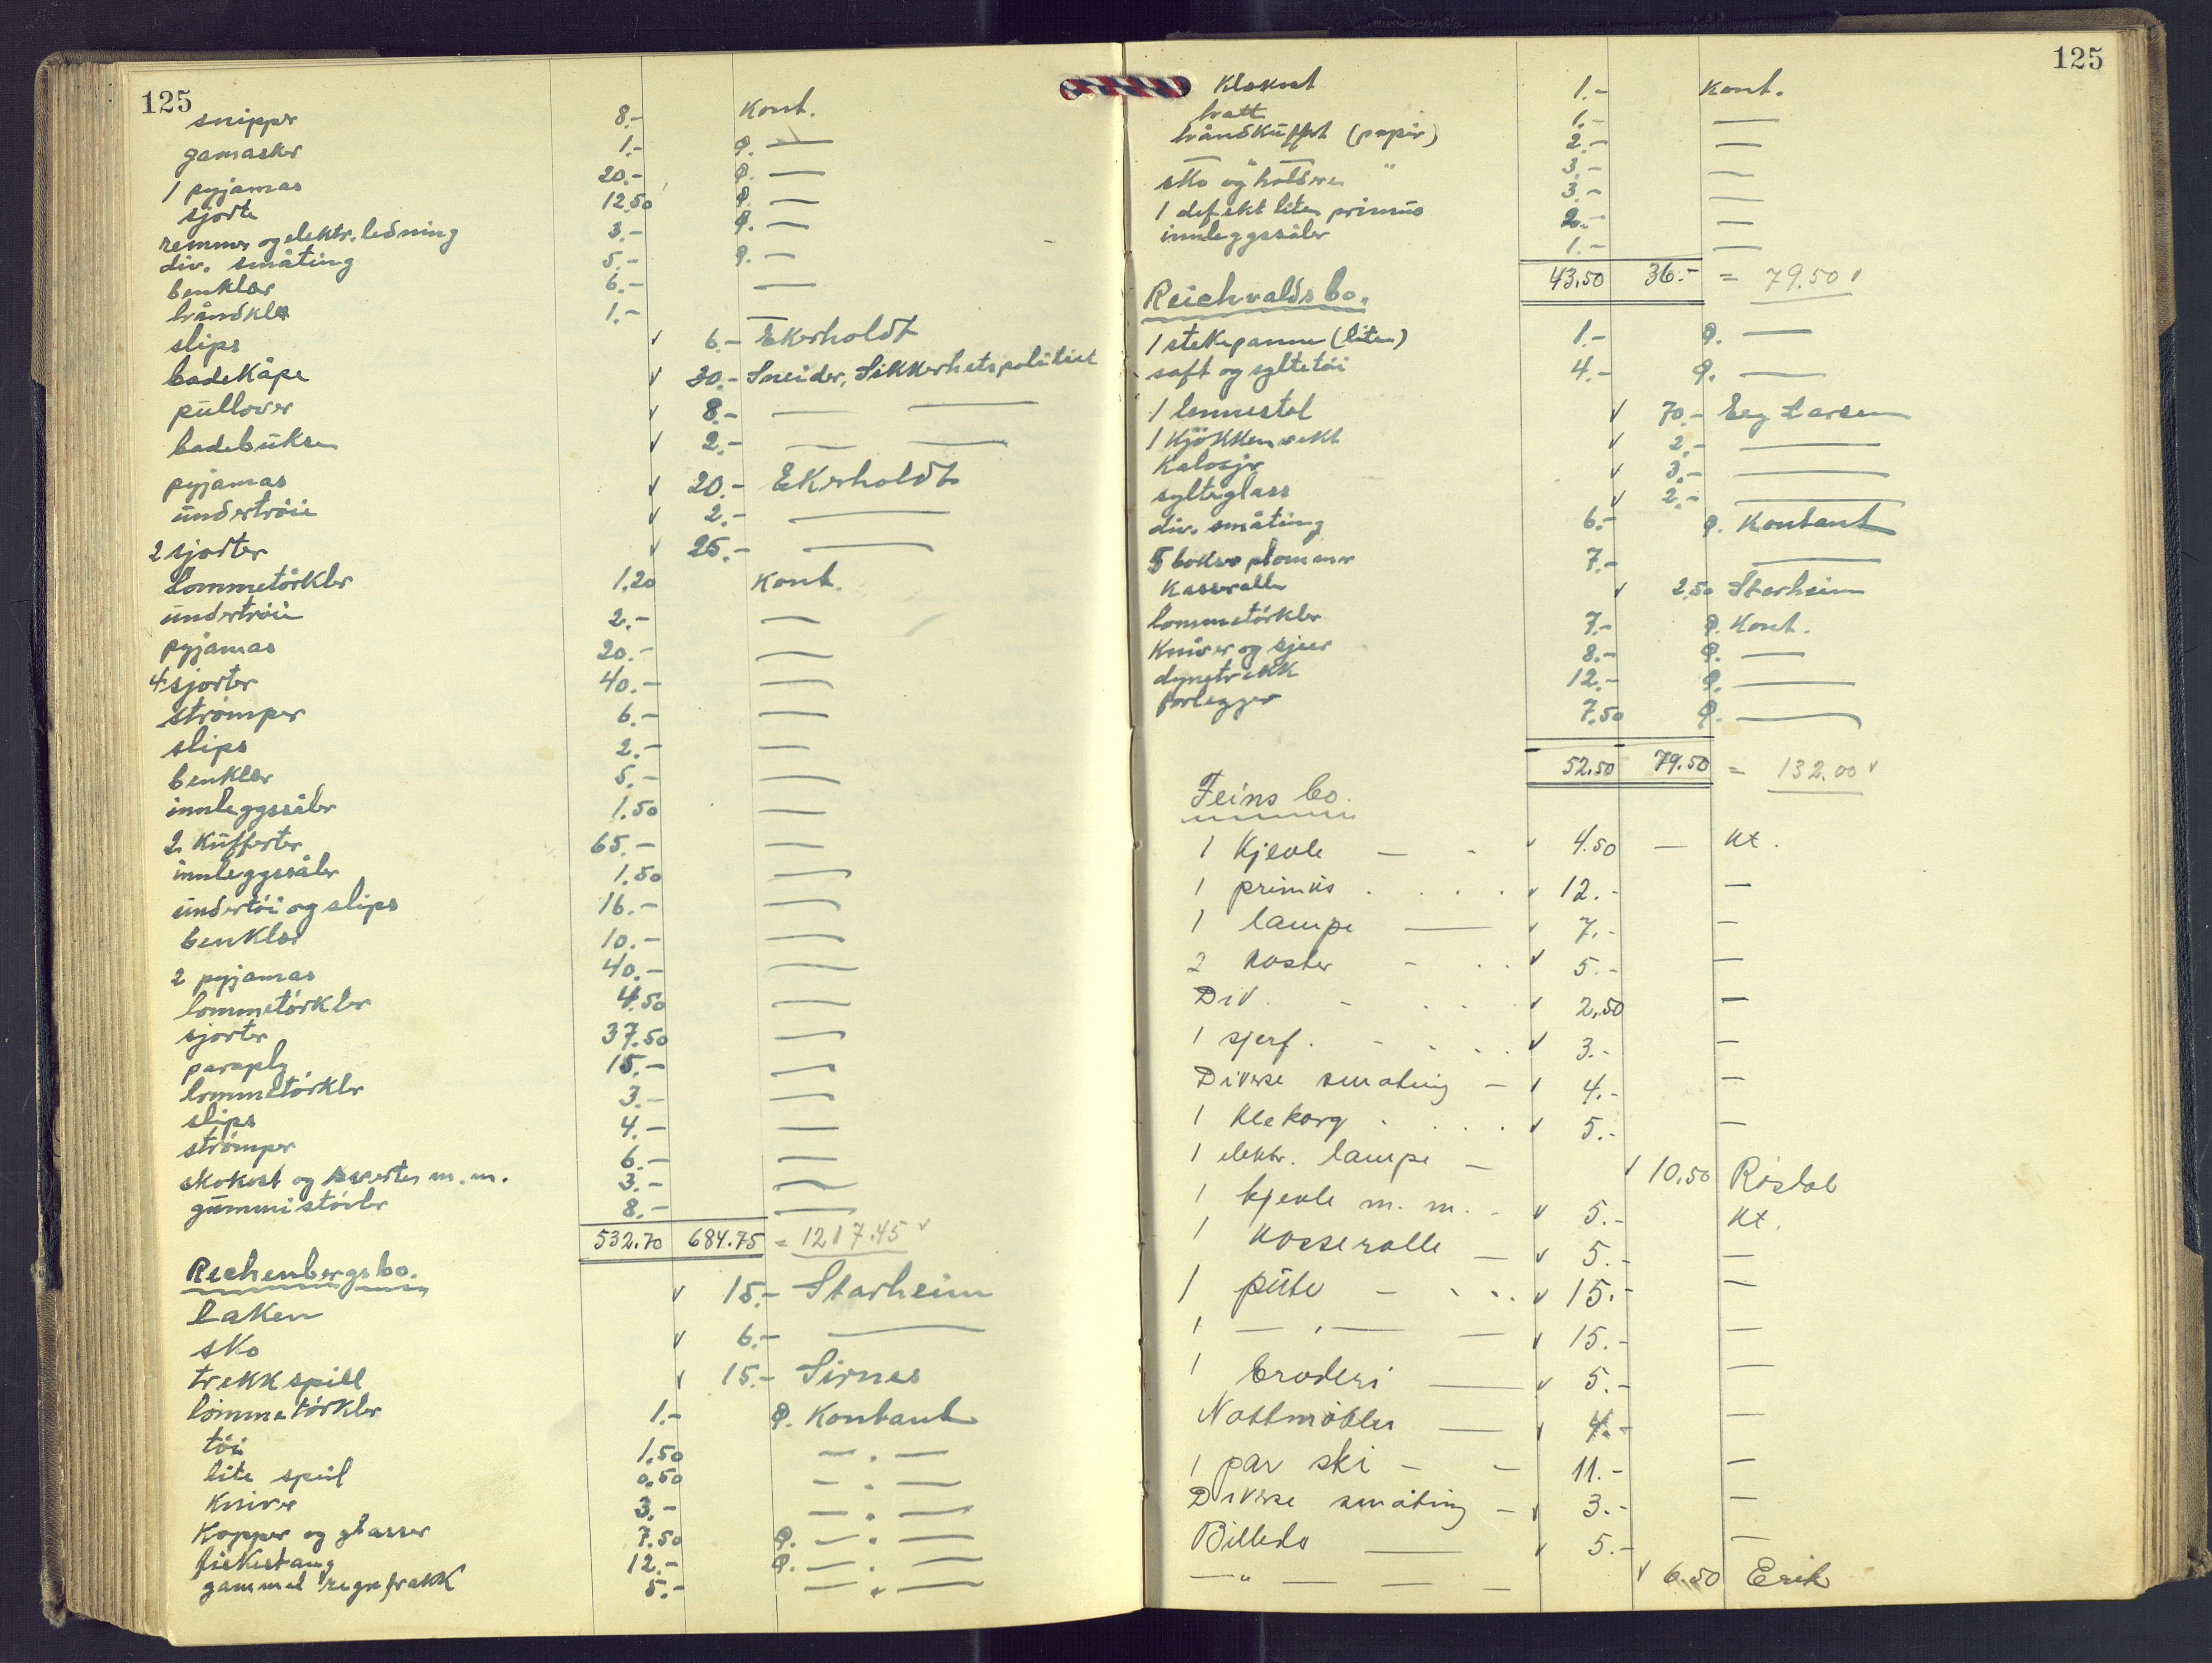 125
snipper 8.- Kont.
gamasker 1.- Q. —
1 pyjamas 20.- Q. —
sjorte 12.50 Q. —
remmer og elektr. ledning 3.- Q. —
div. småting 5.- Q. —
benklær 6.- —
håndklæ 1.- —
slips √ 6.- Ekerholdt
badekåpe √ 30.- Sneider, Sikkerhetspolitiet
pullover √ 8.- — —
badebukse √ 2.- — —
pyjamas √ 20.- Ekerholdt
undertröie √ 2.- —
2 sjorter √ 25.- —
Lommetörkler 1.20 Kont.
undertröie 2.- —
pyjamas 20.- —
4 sjorter 40.- —
strömper 6.- —
slips 2.- —
benklær 5.- —
innleggssåler 1.50 —
2 Kufferter 65.- —
innleggssåler 1.50 —
undertöi og slips 16.- —
benklær 10.- —
2 pyjamas 40.- —
lommetörkler 4.50 —
sjorter 37.50 —
paraply 15.- —
lommetörkler 3.- —
slips 4.- —
strömper 6.- —
skokost og sverte m.m. 3.- —
gummistövler 8.- —
532.70 684.75 = 1217.45 √
Rechenbergs bo.
Laken √ 15.- Starheim
sko √ 6.- —
trekkspill √ 15.- Sirnes
lommetörkler 1.- Q. Kontant
töi 1.50 — " —
lite speil 0.50 — " —
Kniver 3.- — " —
Kopper og glasser 7.50 Q. — " —
fiskestang 12.- Q. — " —
gammel regnfrakk 5.- — " —
125
Klokost 1.- Kont.
hatt 1.- —
håndkuffert (papir) 2.- —
— " — " 3.- —
sko og kalosjer 3.- —
1 defekt liten primus 2.- —
innleggssåler 1.- —
43.50 36.- = 79.50 √
Reichvalds bo.
1 stekepanne (liten) 1.- Q. —
saft og syltetöi 4.- Q. —
1 lennestol √ 70.- Eeg Larsen
1 Kjökkenvekt √ 2.- —
Kalosjer √ 3.- —
sylteglass √ 2.- —
div. småting 6.- Q. Kontant
5 bokser plommer 7.- —
Kasserolle √ 2.50 Starheim
lommetörkler 7.- Q. Kont.
Kniver og sjeer 8.- Q. —
dynetrekk 12.- Q. —
forlegger 7.50 Q. —
52.50 79.50 = 132.00 √
Feins bo.
1 Kjevle — - √ 4.50 — Kt.
1 primus . . . . √ 12.- —
1 lampe — √ 7.- —
2 Koster - . . √ 5.- —
Div. - . . √ 2.50 —
1 sjerf. - . . . √ 3.- —
Diverse småting — √ 4.- —
1 Klekorg . . . . √ 5.- —
1 elektr. lampe — √ 10.50 Röstol
1 kjevle m. m. - √ 5.- Kt.
1 Kasserolle — √ 5.- —
1 pute — . . . √ 15.- —
1 — " — — √ 15.- —
1 broderi — √ 5.- —
Nattmöbler — √ 4.- —
1 par ski — — 11.- —
Diverse småting — √ 3.- —
Billede — √ 5.- —
— " — — — √ 6.50 Erik